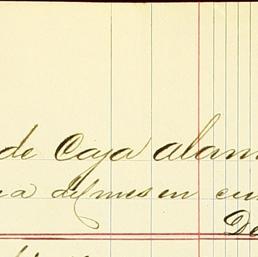 de Caja alam
a del mes en cu
De